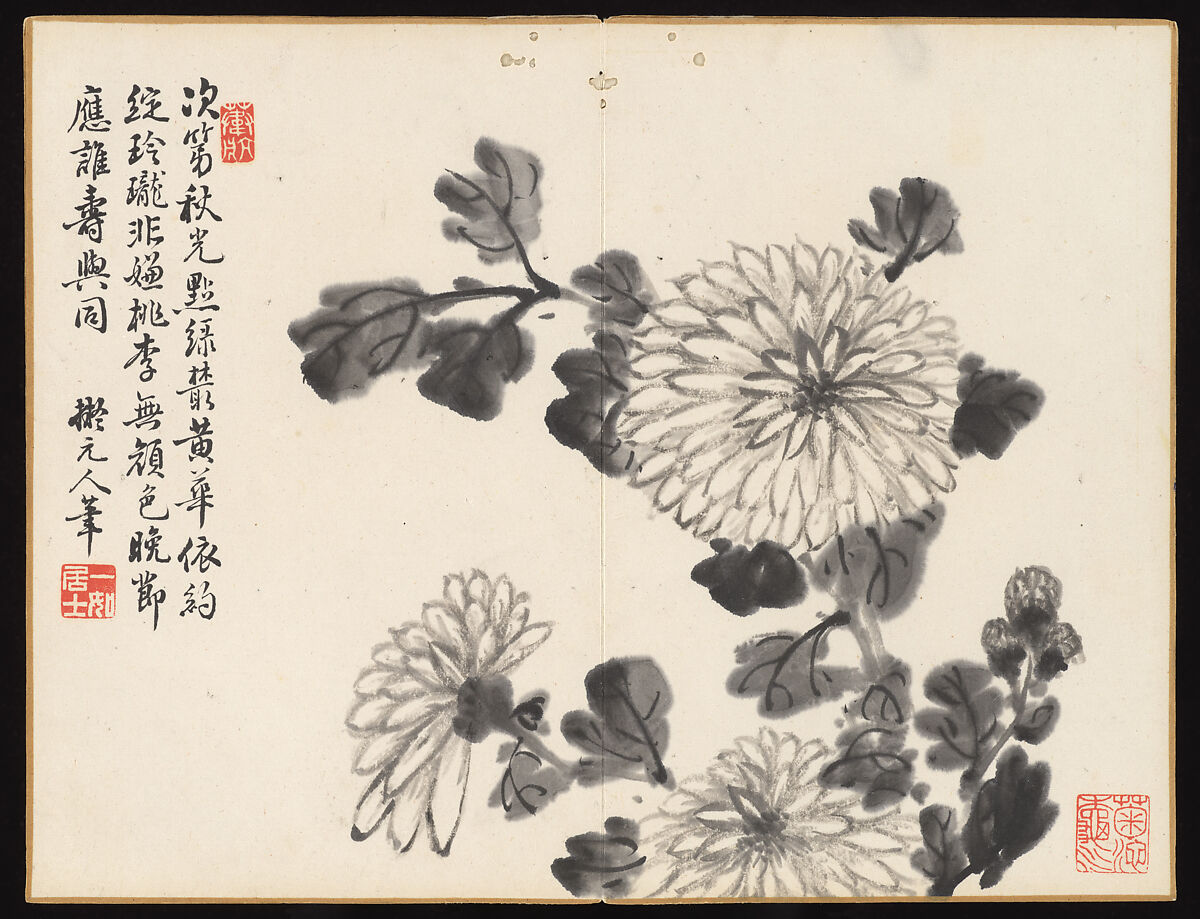 次第秋光點綠叢黃華依約
綻玲瓏非嫌桃李無顏色晚節
應誰壽與同 擬元人筆
一如居士